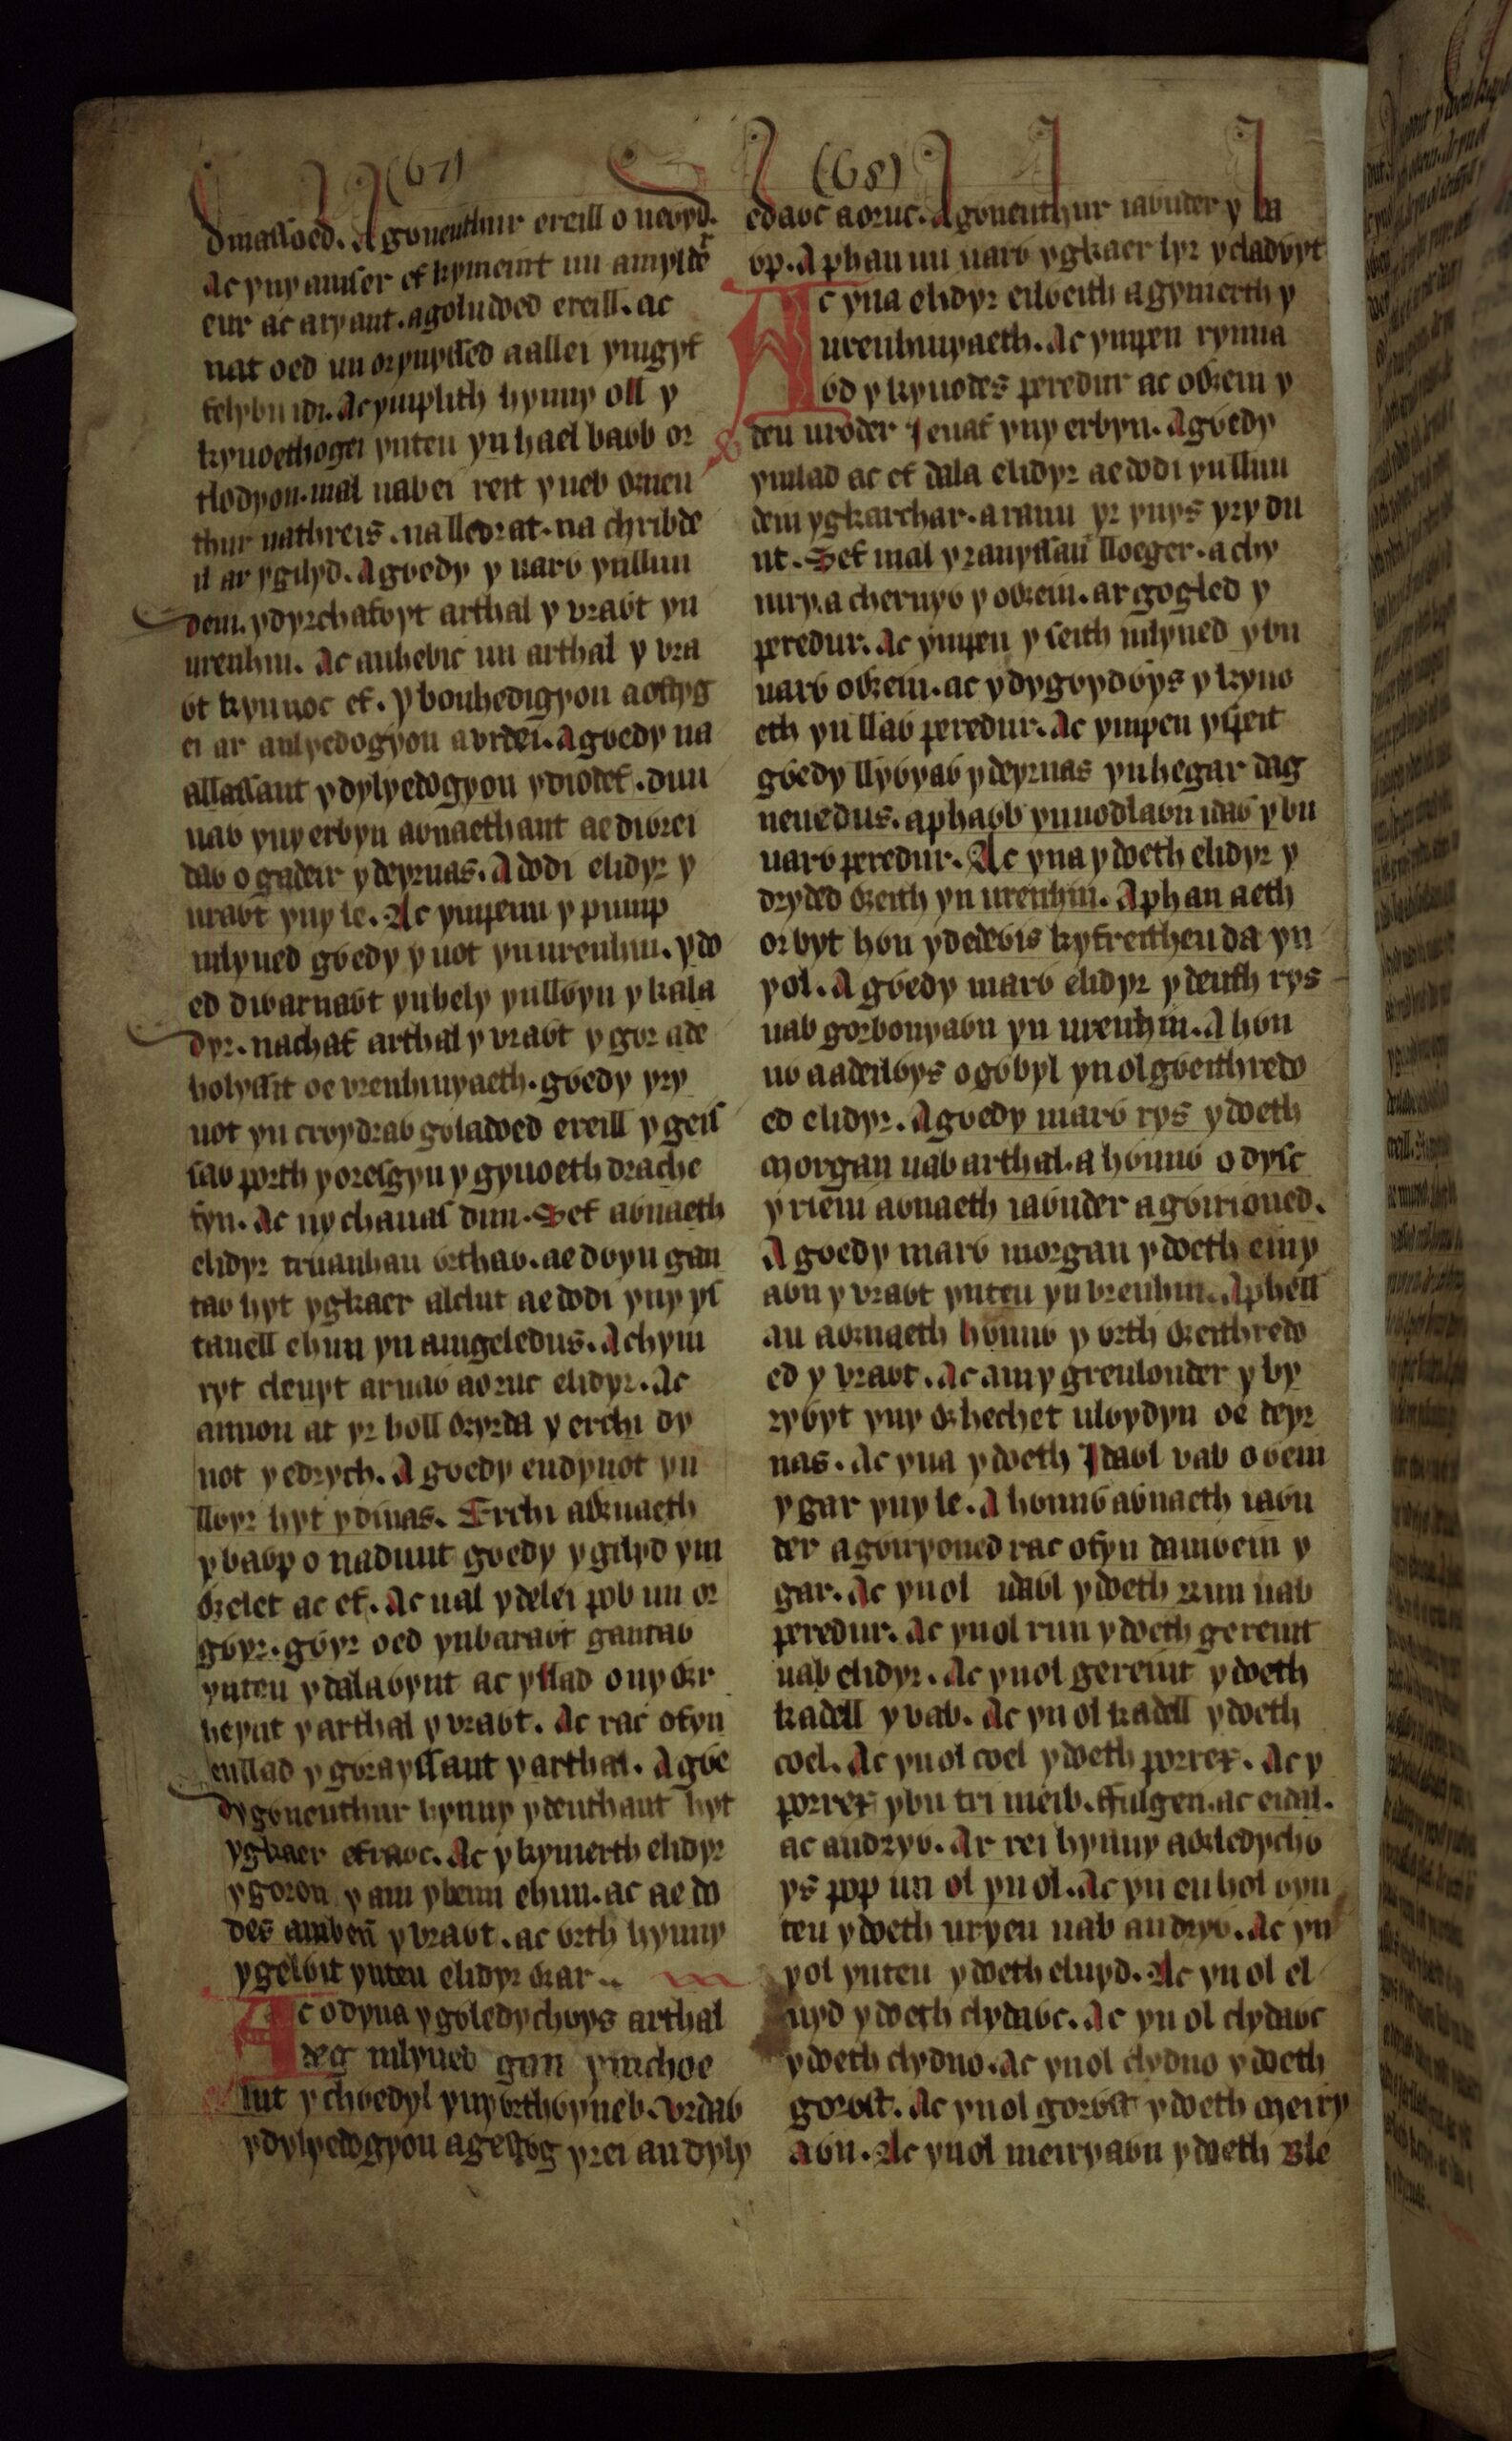 (67)
dinassoed. A gỽneuthur ereill o newyd.
Ac yny amser ef kymeint uu amylder
eur ac aryant. a goludoed ereill. ac
nat oed un or ynyssed a allei ymgyf
felybu idi. Ac ymplith hynny oll y
kyuoethogei ynteu yn hael baỽb or
tlodyon. mal na bei reit y neb ỽneu
thur na threis. na lledrat. na chribde
il ar y gilyd. A gỽedy y uarỽ yn llun
dein. y dyrchafỽyt arthal y vraỽt yn
urenhin. Ac anhebic uu arthal y vra
ỽt kyn noc ef. y bonhedigyon a ostyg
ei ar anlyedogyon a vrdei. A gỽedy na
allassant y dylyedogyon y diodef. duu
naỽ yny erbyn a ỽnaethant ae diỽrei
daỽ o gadeir y deyrnas. A dodi elidyr y
uraỽt yny le. Ac ympenn y pump
mlyned gỽedy y uot yn urenhin. ydo
ed diwarnaỽt yn hely yn llỽyn y kala
dyr. nachaf arthal y vraỽt y gỽr a de
holyssit oe vrenhinyaeth. gỽedy yry
uot yn crỽydraỽ gỽladoed ereill y geis
saỽ porth y oresgyn y gyuoeth drache
fyn. Ac ny chauas dim. Sef a ỽnaeth
elidyr truanhau ỽrthaỽ. ae dỽyn gan
taỽ hyt ygkaer alclut ae dodi yny ys
tauell ehun yn amgeledus. A chym
ryt cleuyt arnaỽ a oruc elidyr. Ac
anuon at yr holl ỽyrda y erchi dy
uot y edrych. A gỽedy eu dyuot yn
llỽyr hyt y dinas. Erchi a ỽnaeth
y baỽp o nadunt gỽedy y gilyd ym
ỽelet ac ef. Ac ual y delei pob un or
gỽyr. gỽyr oed yn baraỽt gantaỽ
ynteu y dala ỽynt ac y llad ony ỽr
heynt y arthal y vraỽt. Ac rac ofyn
eu llad y gỽrayssant y arthal. A gỽe
dy gỽneuthur hynny y deuthant hyt
ygkaer efraỽc. Ac y kymerth elidyr
y goron y am y benn ehun. ac ae do
des am benn y vraỽt. ac ỽrth hynny
y gelỽit ynteu elidyr ỽar
Ac odyna y gỽledychỽys arthal
deg mlyned gan ymchoe
lut y chỽedyl yny ỽrthỽyneb. vrdaỽ
y dylyedogyon a gestỽg yrei an dyly
(68)
edaỽc a oruc. A gỽneuthur iaỽnder y ba
ỽp. A phan uu uarỽ ygkaer lyr y cladỽyt
Ac yna elidyr eilỽeith a gymerth y
urenhinyaeth. Ac ympen rynna
ỽd y kyuodes peredur ac oỽein y
deu uroder ieuaf yny erbyn. A gỽedy
ymlad ac ef dala elidyr ae dodi yn llun
dein ygkarchar. a rannu yr ynys yry du
nt. Sef mal y rannyssant lloeger. a chy
mry. a chernyỽ y oỽein. ar gogled y
peredur. Ac ympen y seith mlyned y bu
uarỽ oỽein. ac y dygỽydỽys y kyuo
eth yn llaỽ peredur. Ac ympen yspeit
gỽedy llyỽyaỽ y deyrnas yn hegar dag
neuedus. a phaỽb yn uodlaỽn idaỽ y bu
uarỽ peredur. Ac yna y doeth elidyr y
dryded ỽeith yn urenhin. A phan aeth
or byt hỽn y dedeỽis kyfreitheu da yn
y ol. A gỽedy marỽ elidyr y deuth rys
uab gorbonyaỽn yn urenhin. A hỽn
nỽ a adeilỽys o gỽbyl yn ol gỽeithredo
ed elidyr. A gỽedy marỽ rys y doeth
morgan uab arthal. a hỽnnỽ o dysc
y rieni a ỽnaeth iaỽnder a gỽirioned.
A gỽedy marỽ morgan y doeth einy
aỽn y vraỽt ynteu yn vrenhin. A phell
au a ỽnaeth hỽnnỽ y ỽrth ỽeithredo
ed y vraỽt. Ac am y greulonder y by
rỽyt yny ỽhechet ulỽydyn oe deyr
nas. Ac yna y doeth Idaỽl vab oỽein
y gar yny le. A hỽnnỽ a ỽnaeth iaỽn
der a gỽiryoned rac ofyn damwein y
gar. Ac yn ol idaỽl y doeth run uab
peredur. Ac yn ol run y doeth gereint
uab elidyr. Ac yn ol gereint y doeth
kadell y vab. Ac yn ol kadell y doeth
coel. Ac yn ol coel y doeth porrex. Ac y
porrex y bu tri meib. ffulgen. ac eidal.
ac andryỽ. Ar rei hynny a ỽledychỽ
ys pop un ol yn ol. Ac yn eu hol ỽyn
teu y doeth uryen uab andryỽ. Ac yn
y ol ynteu y doeth eluyd. Ac yn ol el
uyd y doeth clydaỽc. Ac yn ol clydaỽc
y doeth clydno. Ac yn ol clydno y doeth
gorỽst. Ac yn ol gorỽst y doeth meiry
aỽn. Ac yn ol meiryaỽn y doeth Ble